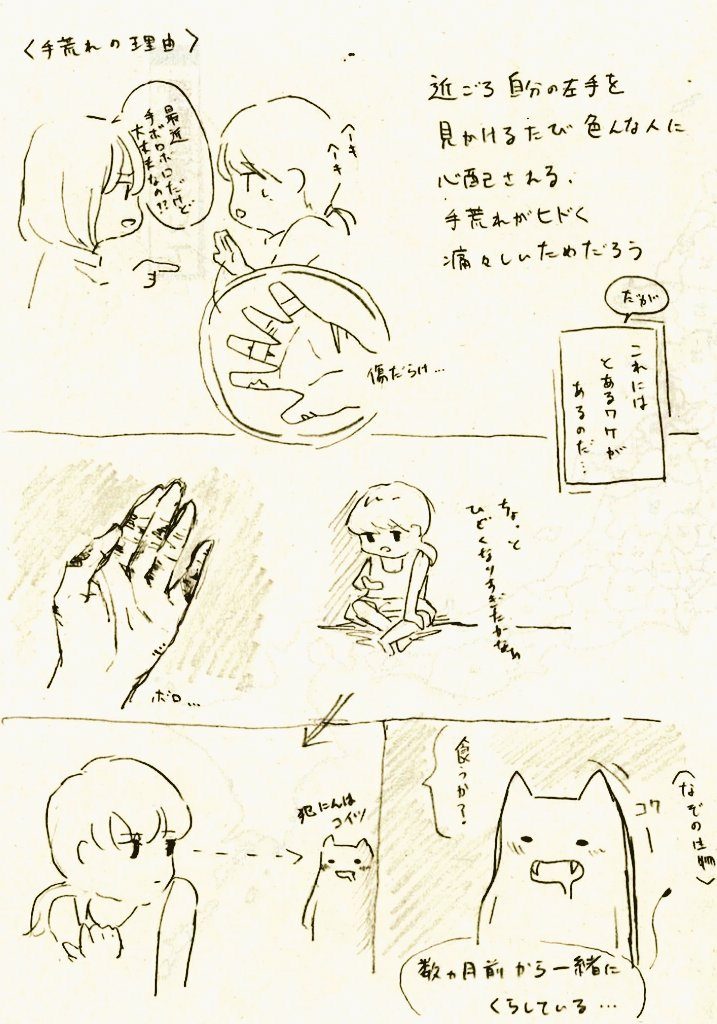 〈手荒れの理由〉
近ごろ自分の左手を
見かけるたび色んな人に
心配される.
手荒れがヒドく
痛々しいためだろう
ヘーキ
ヘーキ
最近
手ボロボロだけど
大丈夫なの!?
傷だらけ…
だが
これには
とあるワケが
あるのだ…
ちょっと
ひどくなりすぎたかなぁ
ボロ…
犯にんは
コイツ
食うか?
コクー
(なぞの生物)
数ヵ月前から一緒に
くらしている…